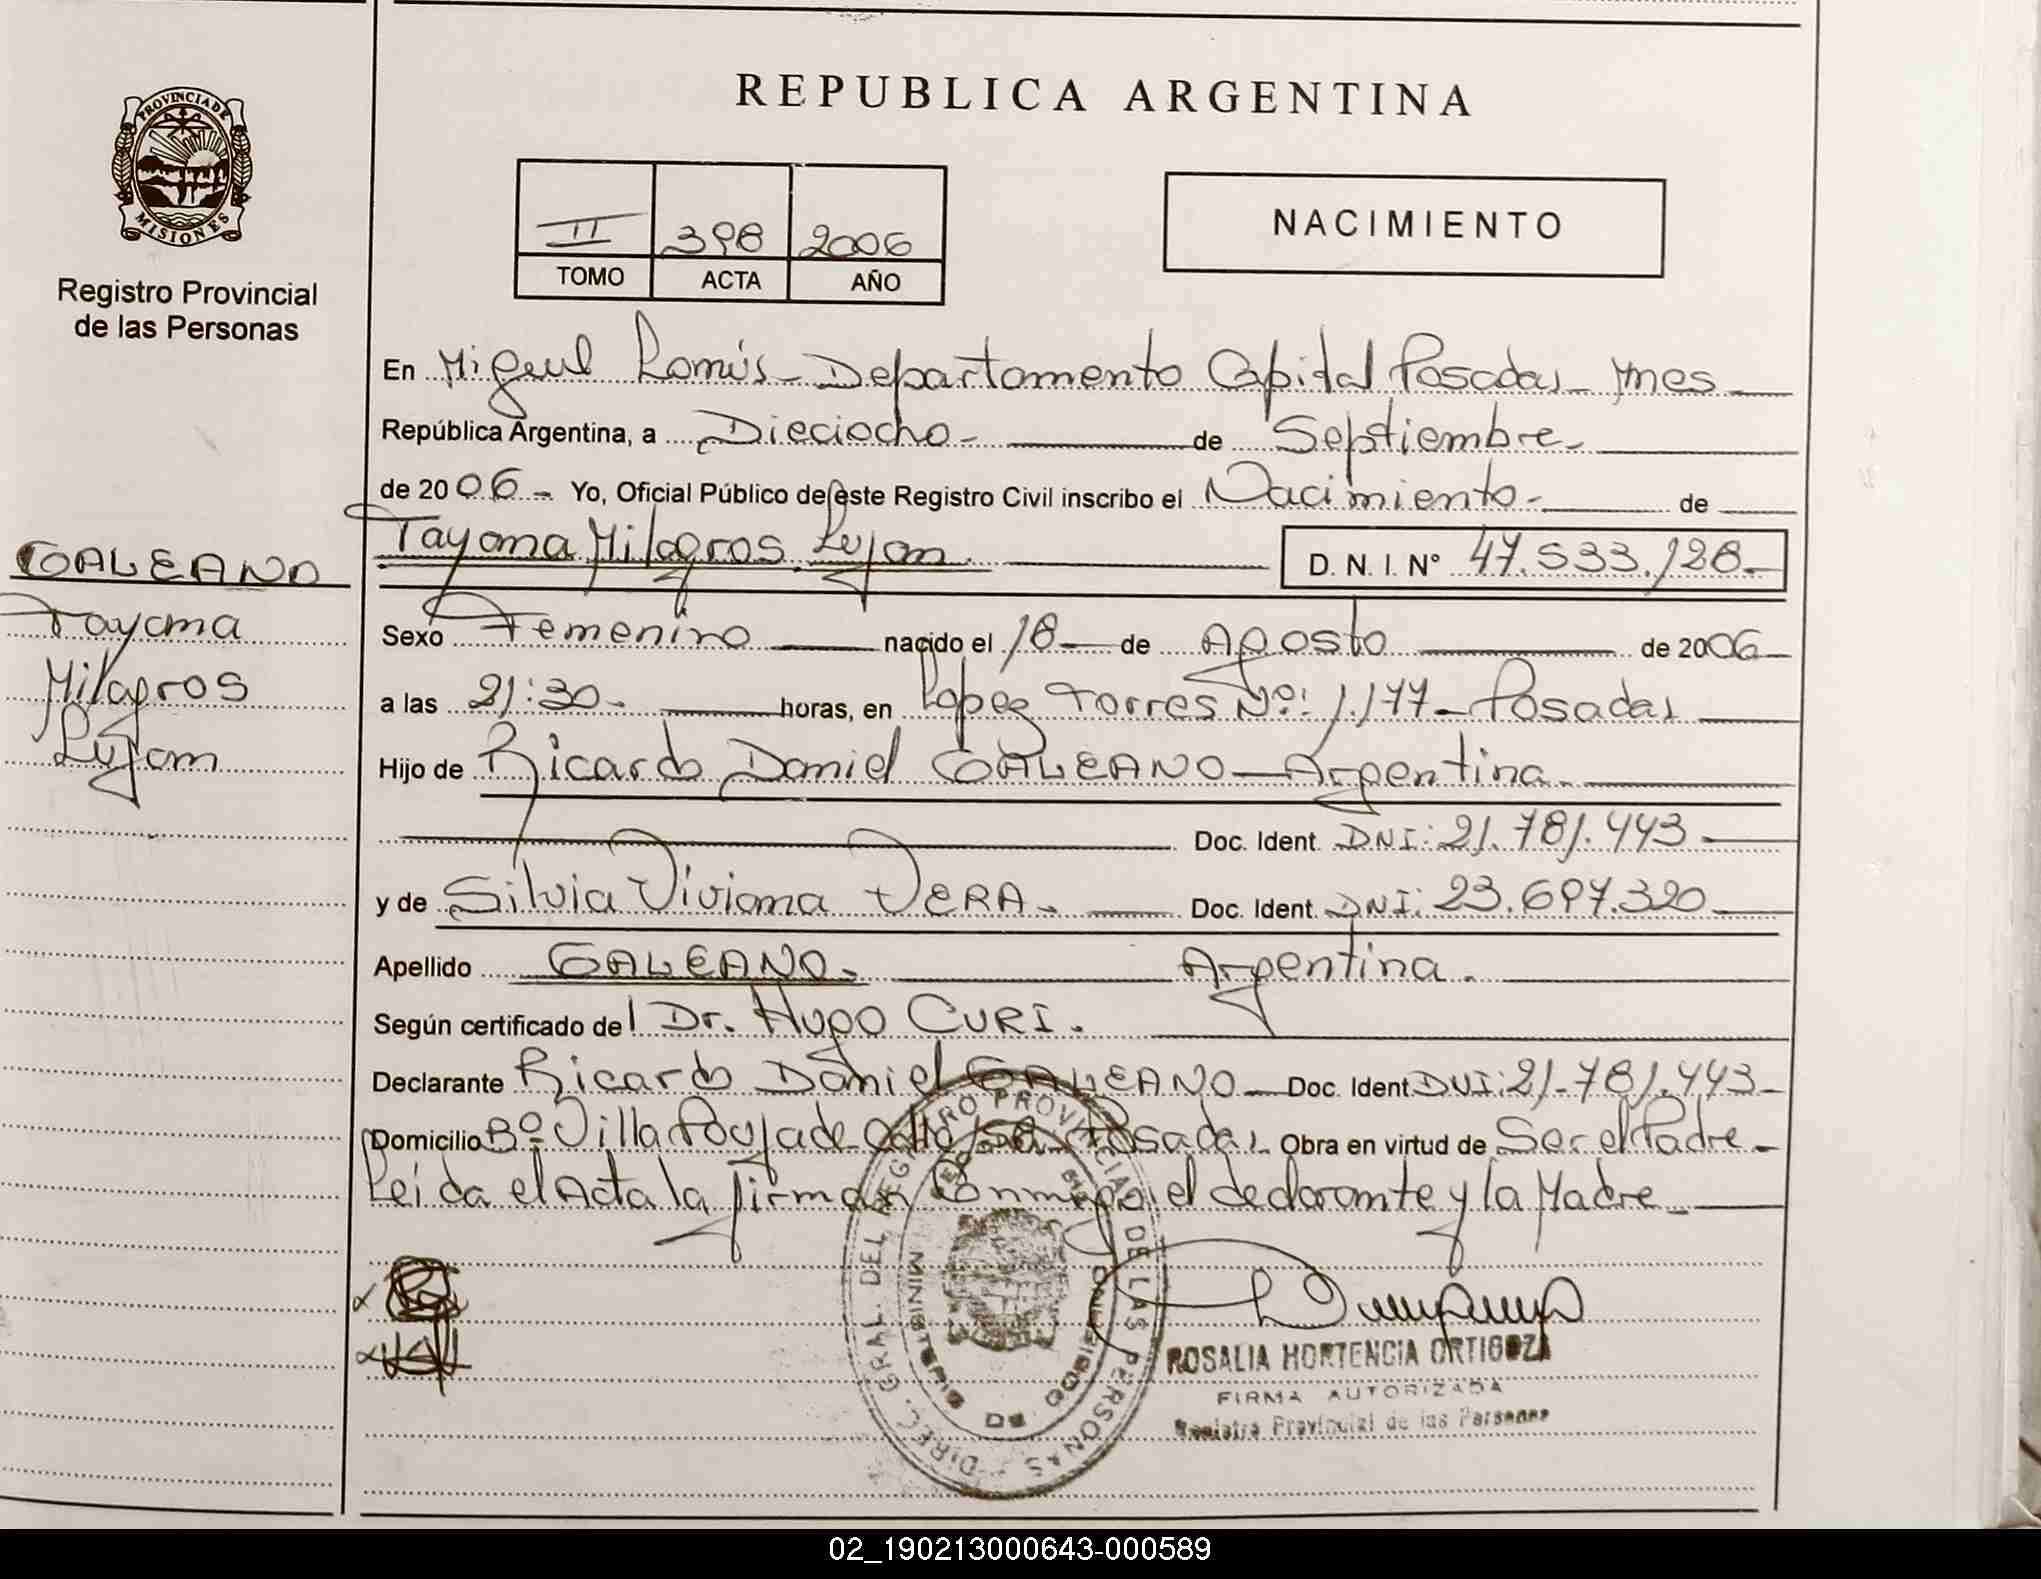 REPUBLICA ARGENTINA
PROVINCIA DE
MISIONES
Registro Provincial
de las Personas
II 398 2006
TOMO ACTA AÑO
NACIMIENTO
En Miguel Lanús - Departamento Capital Posadas - Mnes
República Argentina, a Dieciocho - de Septiembre -
de 2006 - Yo, Oficial Público de este Registro Civil inscribo el Nacimiento - de
Tayana Milagros Lujan D. N. I. N° 47.533.128 -
GALEANO
Tayana
Milagros
Lujan
Sexo Femenino nacido el 18 - de Agosto de 2006 -
a las 21:30 - horas, en Lopez Torres Nº: 1.177 - Posadas
Hijo de Ricardo Daniel GALEANO - Argentina -
Doc. Ident. DNI: 21.781.443 -
y de Silvia Viviana VERA - Doc. Ident. DNI: 23.697.320
Apellido GALEANO - Argentina -
Según certificado del Dr. Hugo CURI .
Declarante Ricardo Daniel GALEANO - Doc. Ident DNI: 21.781.443 -
Domicilio Bº Villa Poujade Posadas Obra en virtud de Ser el Padre -
Leida el Acta la firman Conmigo el declarante y la Madre
DIREC. GRAL. DEL REGISTRO PROVINCIAL DE LAS PERSONAS
MINISTERIO DE
ROSALIA HORTENCIA ORTIGOZA
FIRMA AUTORIZADA
Registro Provincial de las Personas
02_190213000643-000589